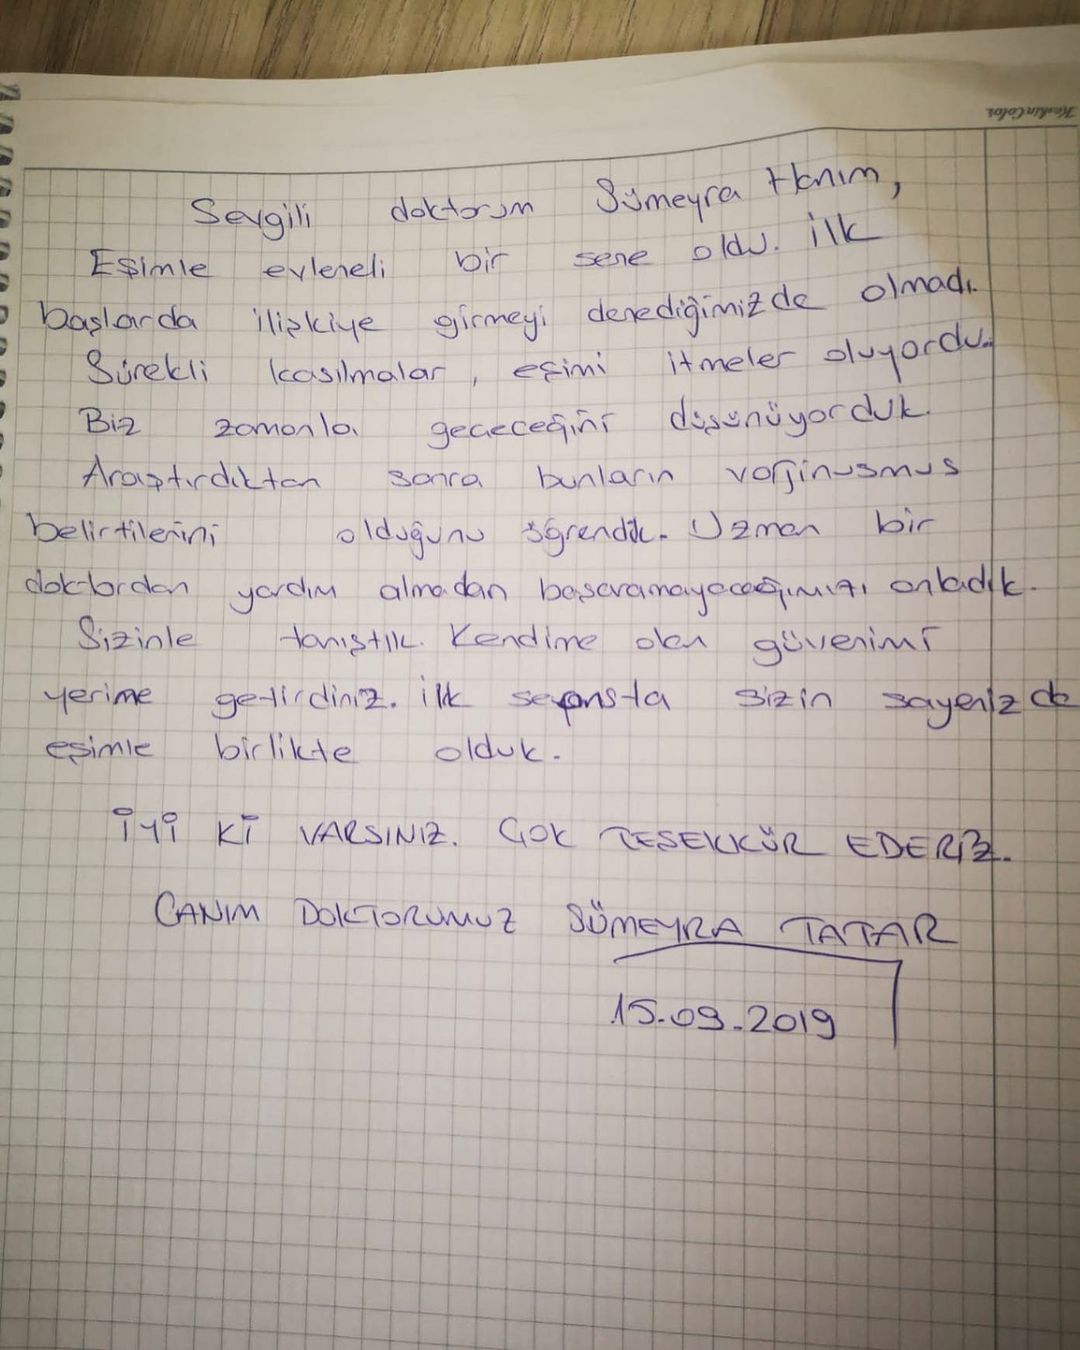 KeskinColor
Sevgili doktorum Sümeyra Hanım,
Eşimle evleneli bir sene oldu. İlk
başlarda ilişkiye girmeyi denediğimizde olmadı.
Sürekli kasılmalar, eşimi itmeler oluyordu.
Biz zamanla geçeceğini düşünüyorduk.
Araştırdıktan sonra bunların vajinusmus
belirtilerini olduğunu öğrendik. Uzman bir
doktordan yardım almadan başaramayacağımızı anladık.
Sizinle tanıştık. Kendime olan güvenimi
yerime getirdiniz. İlk seansta sizin sayenizde
eşimle birlikte olduk.
İYİ Kİ VARSINIZ. ÇOK TEŞEKKÜR EDERİZ.
CANIM DOKTORUMUZ SÜMEYRA TATAR
15.09.2019